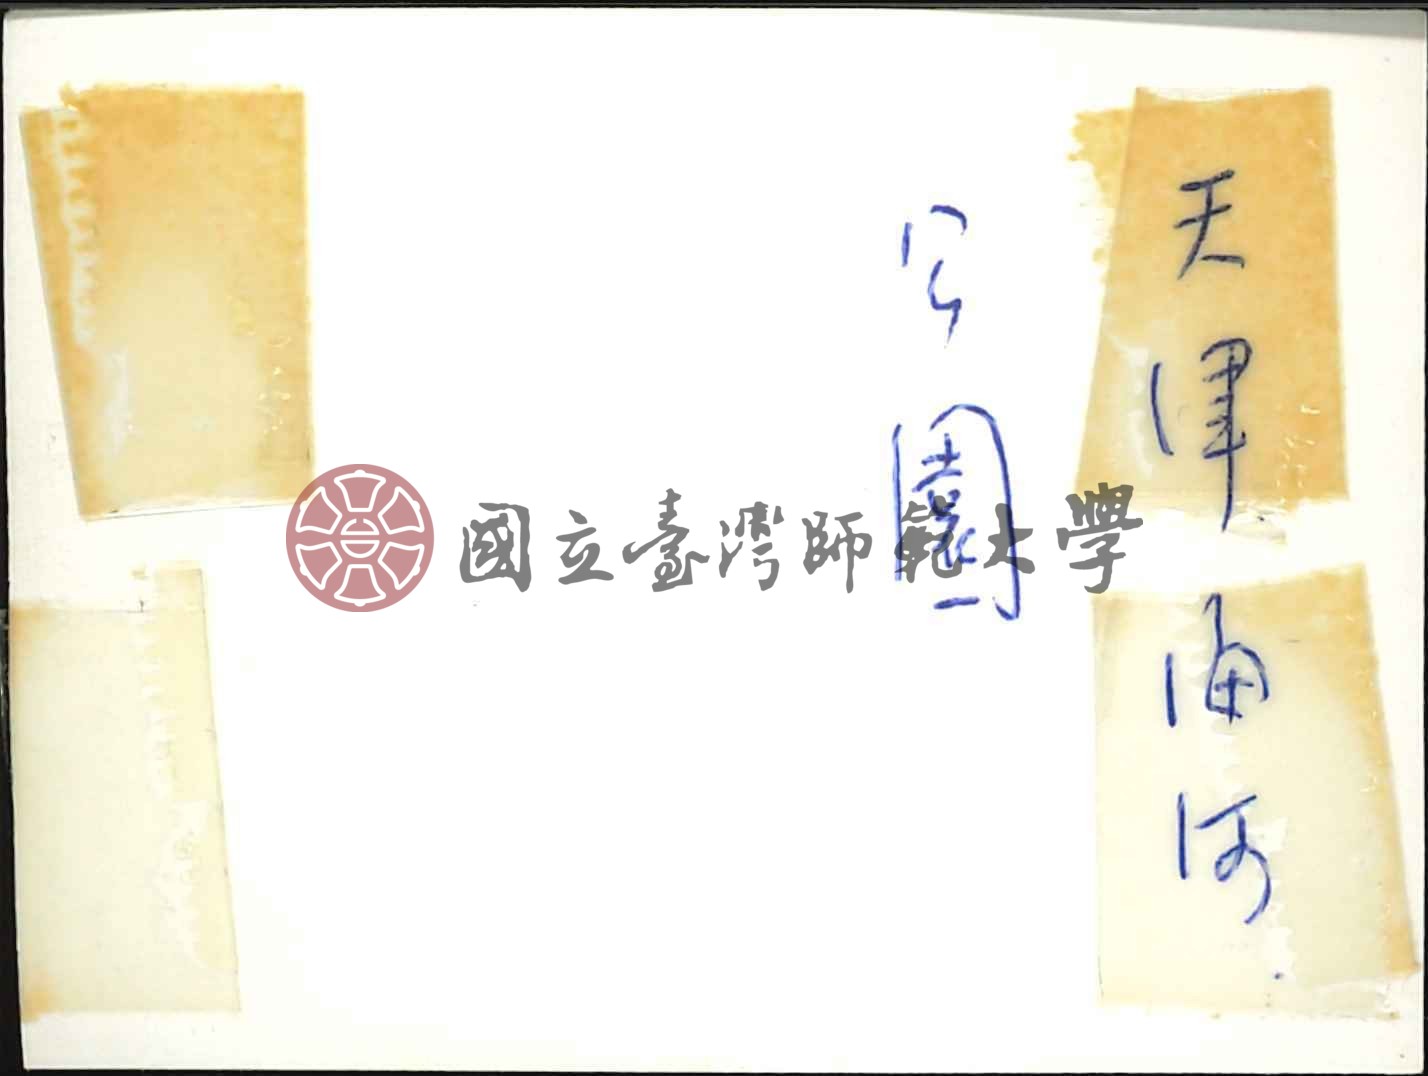 天津海河
公園
國立臺灣師範大學